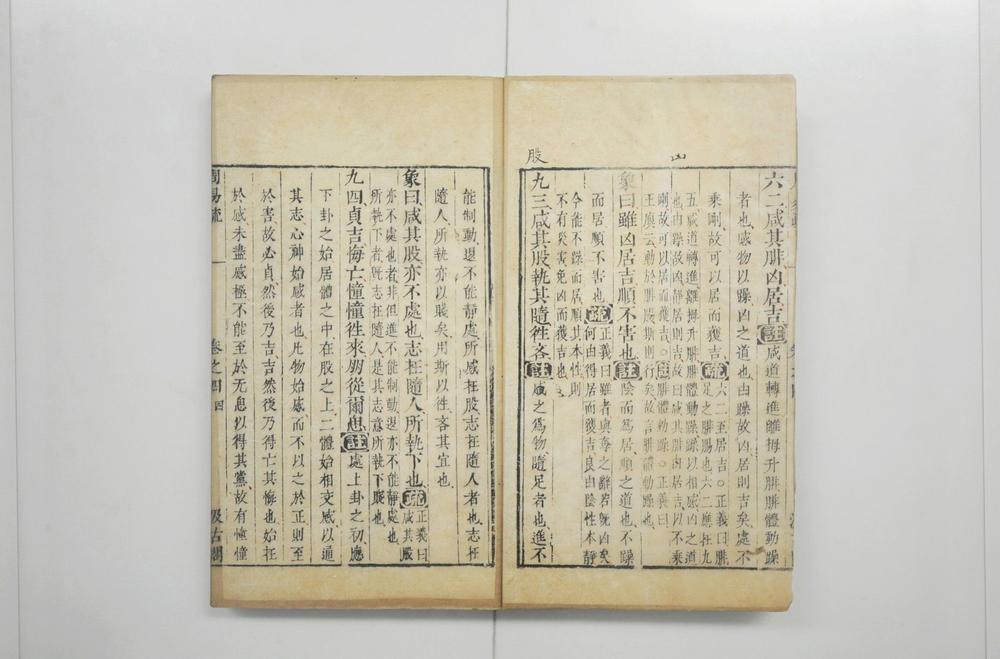 山
股
六二咸其腓凶居吉註咸道轉進離拇升腓腓體動躁
者也感物以躁凶之道也由躁故凶居則吉矣處不
乘剛故可以居而獲吉疏六二至居吉○正義曰腓
足之腓腸也六二應在九
五咸道轉進離拇升腓腓體動躁躁以相感凶之道
也由躁故凶靜居則吉故曰咸其腓凶居吉以不乘
剛故可以居而獲吉○註腓體動躁○正義曰
王廙云動於腓腸斯則行矣故言腓體動躁也
象曰雖凶居吉順不害也註陰而爲居順之道也不躁
而居順不害也疏正義曰雖者與奪之辭若旣凶矣
何由得居而獲吉良由陰性本靜
今能不躁而居順其本性則
不有災害免凶而獲吉也
九三咸其股執其隨往吝註咸之爲物隨足者也進不
能制動退不能靜處所感在股志在隨人者也志在
隨人所執亦以賤矣用斯以往吝其宜也
象曰咸其股亦不處也志在隨人所執下也疏正義曰
咸其股
亦不處也者非但進不能制動退亦不能靜處也
所執下者旣志在隨人是其志意所執下賤也
九四貞吉悔亡憧憧往來朋從爾思註處上卦之初應
下卦之始居體之中在股之上二體始相交感以通
其志心神始感者也凡物始感而不以之於正則至
於害故必貞然後乃吉吉然後乃得亡其悔也始在
於感未盡感極不能至於无息以得其黨故有憧憧
周易疏
卷之四
四
汲古閣